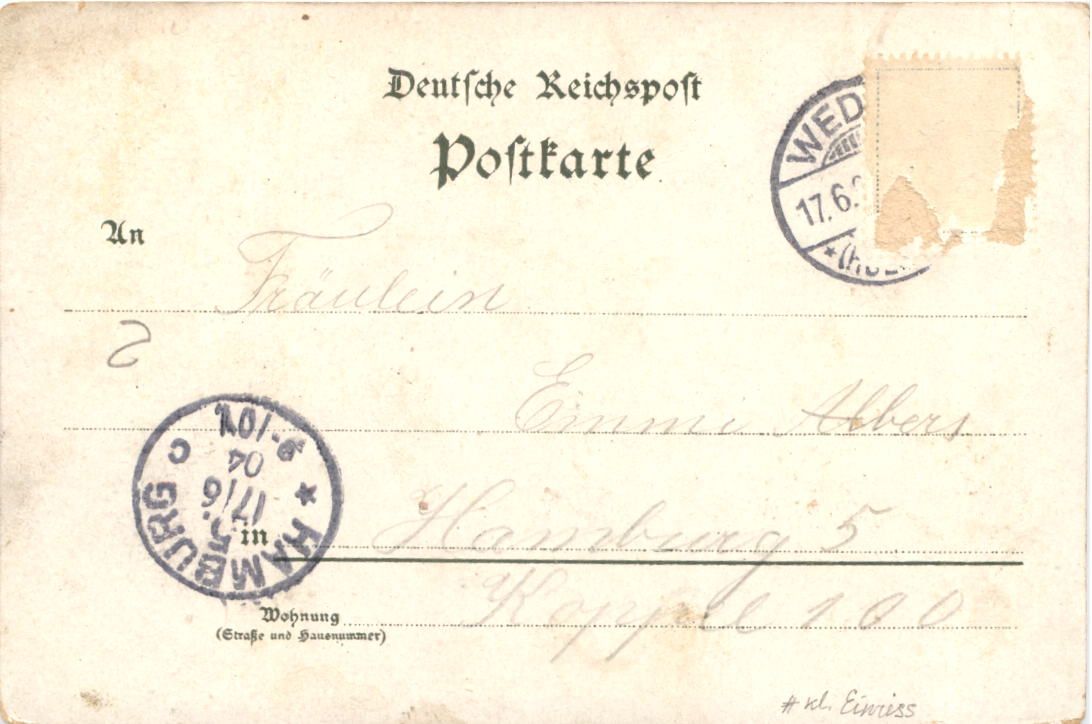 Deutsche Reichspost
Postkarte
WED
17.6.
*(HOL
An
Fräulein
2
Emmi Albers
* HAMBURG C
5.
17/6
04
9-10V.
in Hamburg 5
Wohnung Koppel 100
(Straße und Hausnummer)
# kl. Einriss